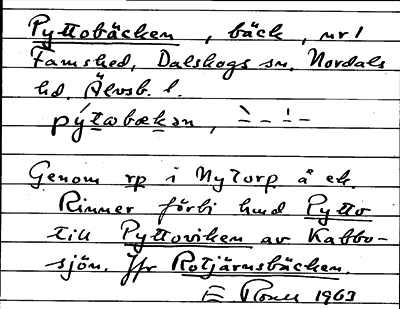 Pyttobäcken, bäck, nr 1
Famshed, Dalskogs sn, Nordals
hd, Älvsb. l.
pýtωbækən,
Genom rp i Nytorp å ek.
Rinner förbi hmd Pytto
till Pyttoviken av Kabbo-
sjön. Jfr Rotjärnsbäcken.
1963